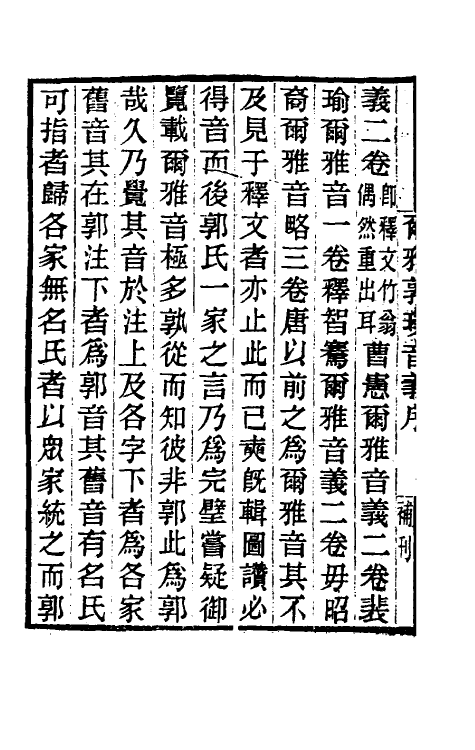 爾雅郭璞音義序 補刊
義二卷卽釋文竹翁偶然重出耳曹憲爾雅音義二卷裴
瑜爾雅音一卷釋智騫爾雅音義二卷毋昭
裔爾雅音略三卷唐以前之爲爾雅音其不
及見于釋文者亦止此而已奭旣輯圖讚必
得音而後郭氏一家之言乃爲完璧嘗疑御
覽載爾雅音極多孰從而知彼非郭此爲郭
哉久乃覺其音於注上及各字下者爲各家
舊音其在郭注下者爲郭音其舊音有名氏
可指者歸各家無名氏者以眾家統之而郭